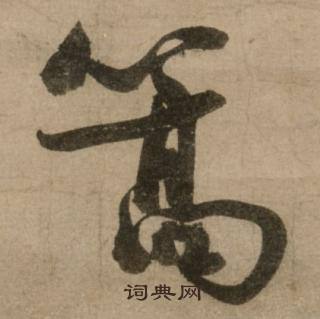 篙
词典网